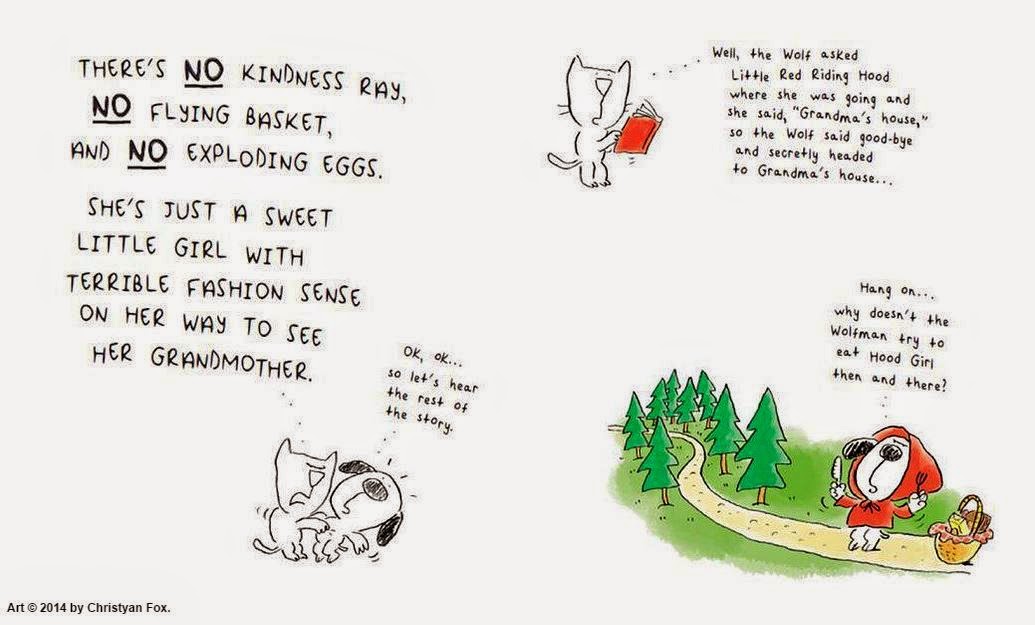 THERE'S NO KINDNESS RAY,
NO FLYING BASKET,
AND NO EXPLODING EGGS.
SHE'S JUST A SWEET
LITTLE GIRL WITH
TERRIBLE FASHION SENSE
ON HER WAY TO SEE
HER GRANDMOTHER.
OK, OK...
so let's hear
the rest of
the story.
Well, the Wolf asked
Little Red Riding Hood
where she was going and
she said, "Grandma's house,"
so the Wolf said good-bye
and secretly headed
to Grandma's house...
Hang on...
why doesn't the
Wolfman try to
eat Hood Girl
then and there?
Art © 2014 by Christyan Fox.